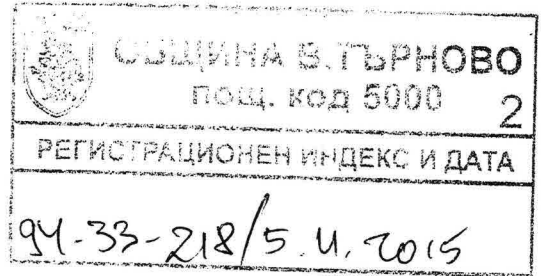 ОБЩИНА В. ТЪРНОВО
ПОЩ. КОД 5000 2
РЕГИСТРАЦИОНЕН ИНДЕКС И ДАТА
94-33-218/5.11.2015